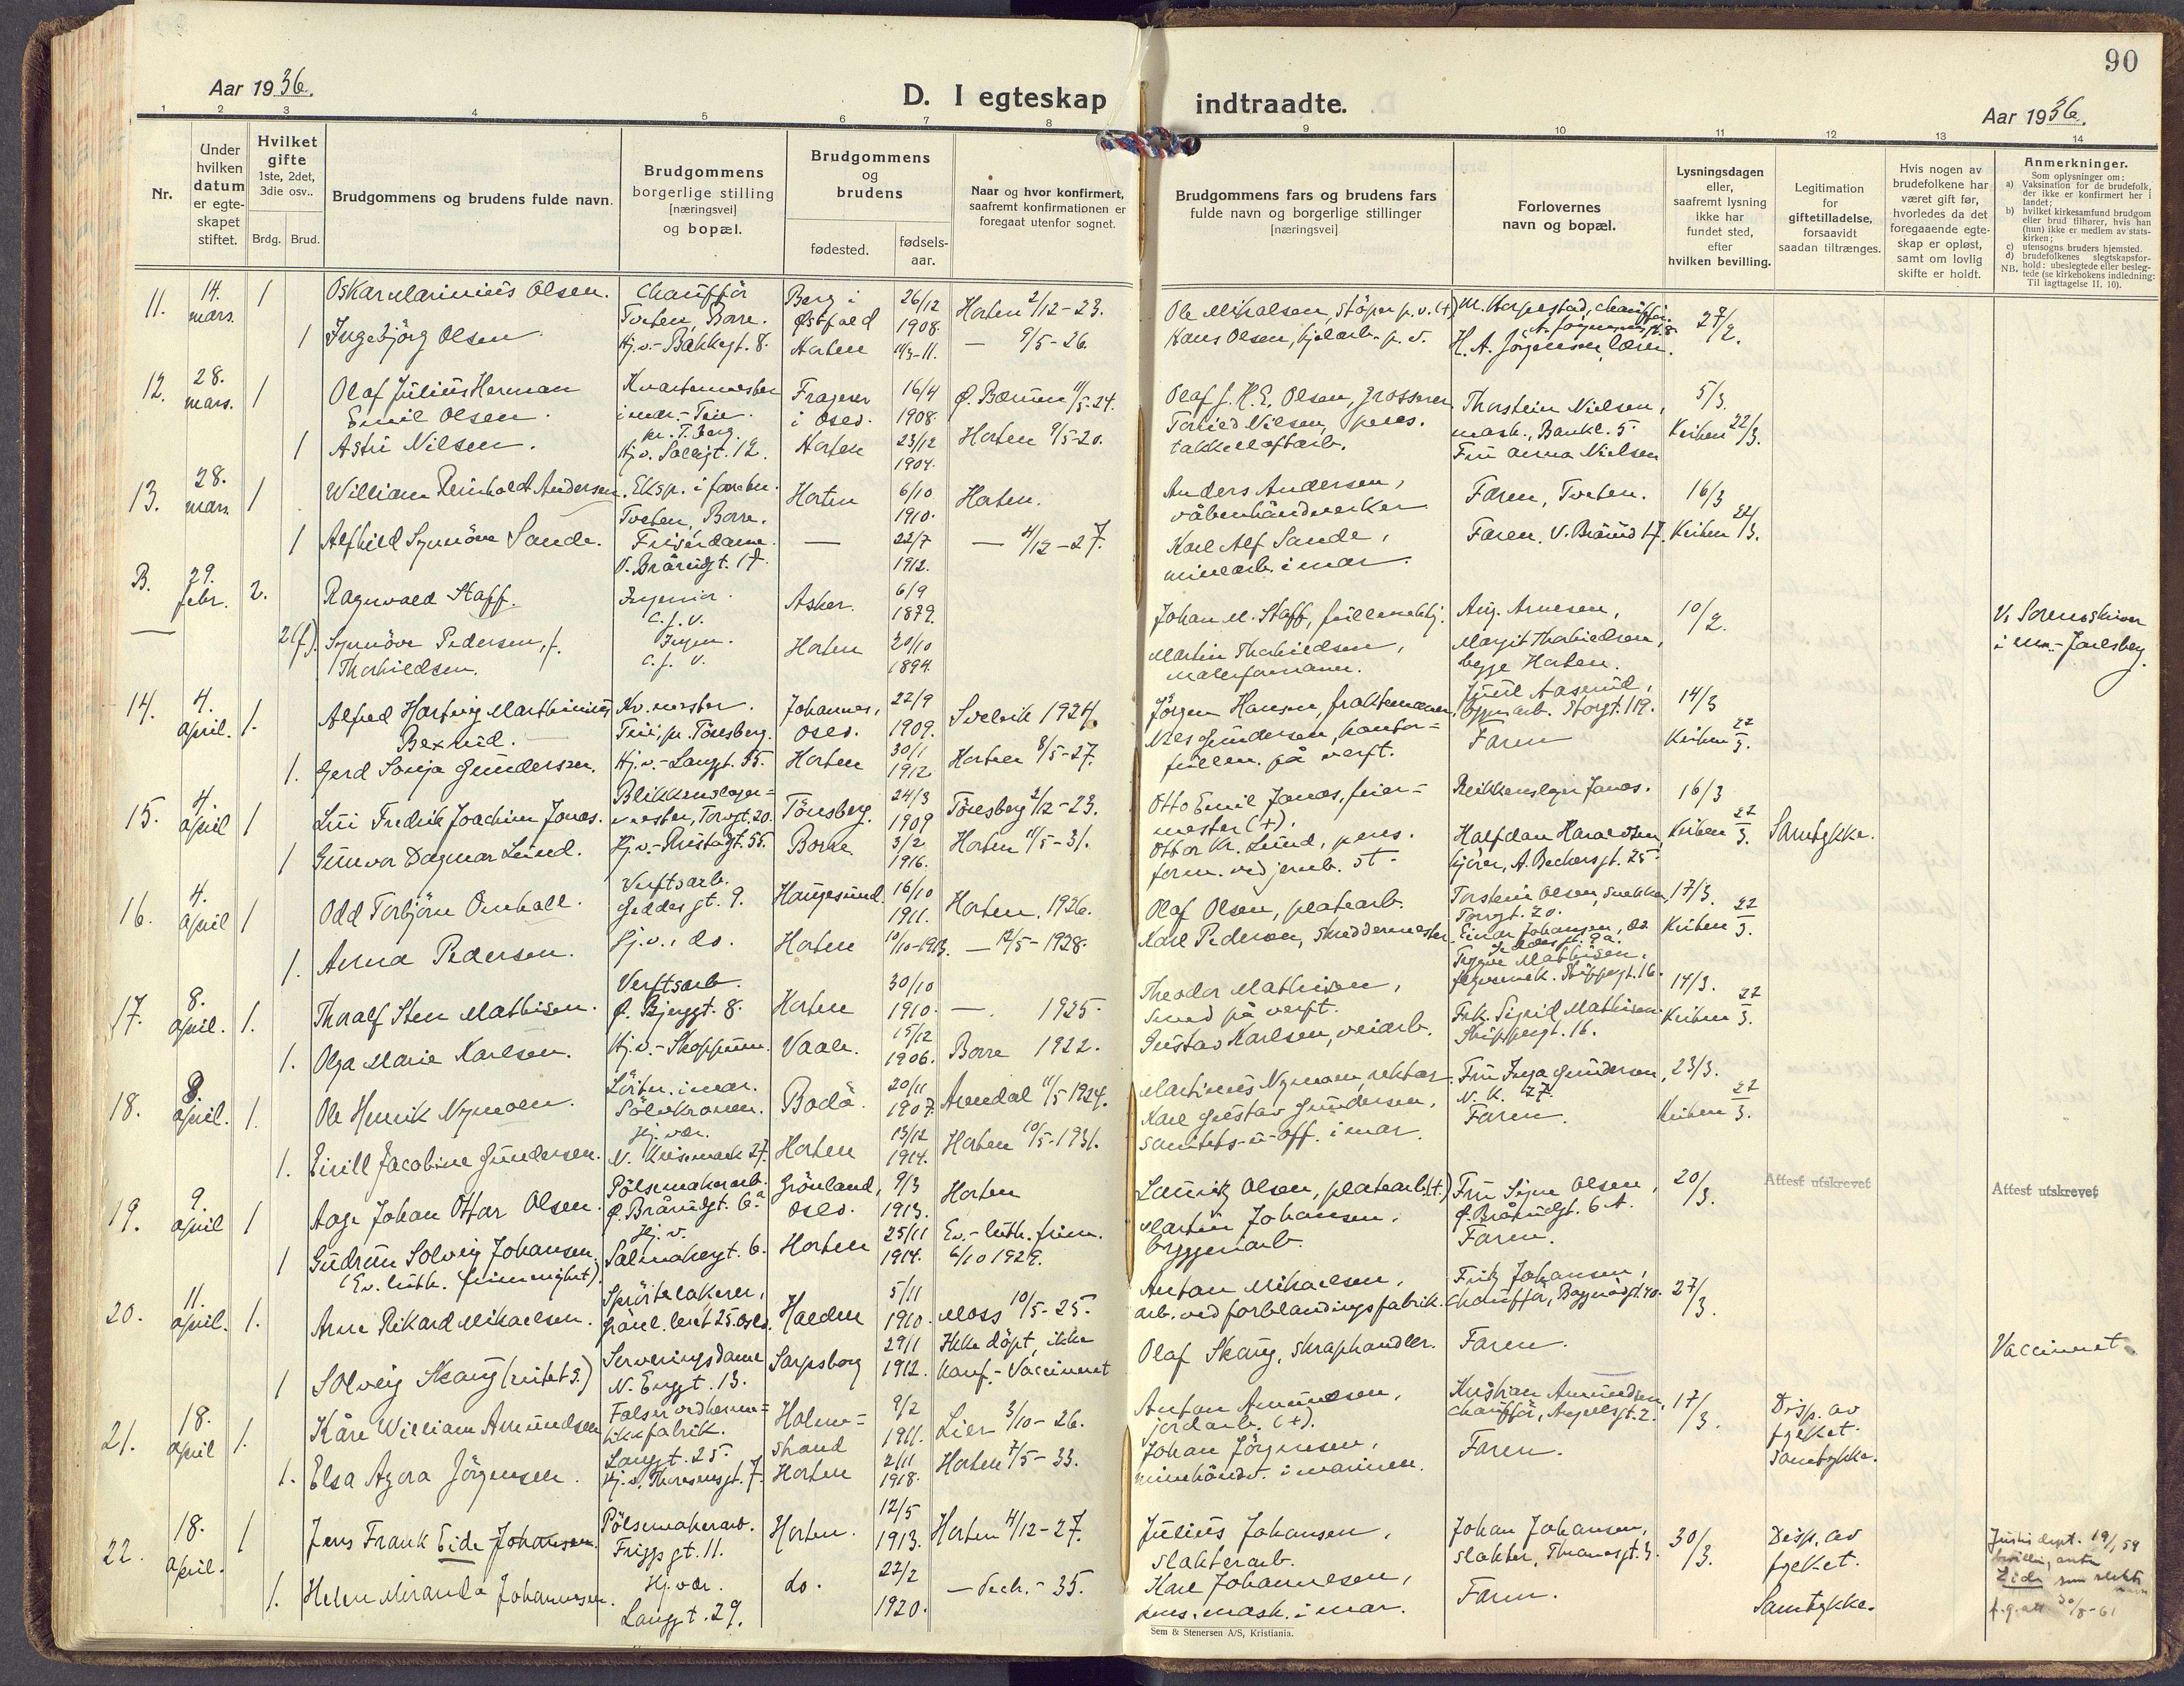 90
Aar 1936.
D. I egteskap indtraadte.
Aar 1936.
1 2 3 4 5 6 7 8 9 10 11 12 13 14
Nr.
Under hvilken datum er egte-skapet stiftet.
Hvilket gifte 1ste, 2det, 3die osv..
Brdg. Brud.
Brudgommens og brudens fulde navn.
Brudgommens borgerlige stilling [næringsvei] og bopæl.
Brudgommens og brudens
fødested.
fødsels-aar.
Naar og hvor konfirmert, saafremt konfirmationen er foregaat utenfor sognet.
Brudgommens fars og brudens fars fulde navn og borgerlige stillinger [næringsvei]
Forlovernes navn og bopæl.
Lysningsdagen eller, saafremt lysning ikke har fundet sted, efter hvilken bevilling.
Legitimation for giftetilladelse, forsaavidt saadan tiltrænges.
Hvis nogen av brudefolkene har været gift før, hvorledes da det foregaaende egte-skap er opløst, samt om lovlig skifte er holdt.
Anmerkninger.
Som oplysninger om:
a) Vaksination for de brudefolk, der ikke er konfirmert her i landet;
b) hvilket kirkesamfund brudgom eller brud tilhører, hvis han (hun) ikke er medlem av stats-kirken;
c) utensogns bruders hjemsted.
d) brudefolkenes slegtskapsfor-hold: ubeslegtede eller besleg-tede (se kirkebokens indledning: Til iagttagelse II. 10).
NB.
11. 14. mars. 1 Oskar Marinius Olsen. Chauffør Tveten, Borre. Berg i Østfold 26/12 1908. Horten 2/12-23. Ole Mikalsen, støper p.v. (+) 27/2.
1 Ingebjörg Olsen. Hj.v.- Bakkegt. 8. Horten — 9/5-26. Hans Olsen, p.v. H. A. Jörgensen, lærer.
12. 28. mars. 1 Olaf Julius Herman Emil Olsen. Kvartermester i mar.- Teie pr. T.berg. Frogner i Oslo. 16/4 1908. Ø. Bærum 11/5-24. Olaf J. H. E. Olsen, grosserer. Thorstein Nielsen, mask., Bankl. 5. 5/3.
1 Astri Nilsen. Hj.v. 12. Horten 23/12 1904. Horten 9/5-20. Nilsen, pens. takkelloftarb. Fru Anna Nielsen Kirken 22/3.
13. 28. mars. 1 William Reinholdt Andersen. Eksp. i forretn. Tveten, Borre. Horten 6/10 1910. Horten. Anders Andersen, våbenhåndverker Faren, Tveten. 16/3
1 Alfhild Synnöve Sande. Frisördame. V. Brårudgt. 17. — 22/7 1912. — 4/12-27. Karl Alf Sande, minearb. i mar. Faren. V. Brårud 17. Kirken 22/3.
B. 29. febr. 2. Ragnvald Staff. Ingeniör. C.J.V. Asker. 6/9 1879. Johan M. Staff, fullmektig. Aug. Arnesen, 10/2. V. Sorenskriver i n.- Jarlsberg.
2(f). Synnöve Pedersen, f. Thorkildsen. Ingen. C.J.V. Horten 20/10 1894. Martin Thorkildsen, malerformann. Margit Thorkildsen, begge Horten.
14. 4. april. 1. Alfred Hartvig Marthinius Bexrud. Kv.mester. Teie, pr. Tönsberg. Johannes, Oslo. 22/9 1909. Svelvik 1924. Jörgen Hansen, Juul Aasrud, byggn.arb. Storgt. 119. 14/3
1. Gerd Sonja Gundersen. Hj.v.- Langgt. 55. Horten 30/1 1912 Horten 8/5-27. Nils Gundersen, kontor-fullm. på verft. Faren Kirken 22/3.
15. 4. april 1 Lui Fredrik Joachim Jonas. Blikkenslager-mester, Torvgt. 20. Tönsberg. 24/3 1909 Tönsberg 2/12-23. Otto Emil Jonas, feier-mester (+). Blikkenslager Jonas. 16/3
1 Gunvor Dagmar Lund. Hj.v.- 55. Borre 3/2 1916. Horten 11/5-31. Ottar Kr. Lund, pens. form. ved jernb. st. Halfdan Haraldsen, kjörer, A. Beckersgt. 25. Kirken 22/3. Samtykke.
16. 4. april 1 Odd Torbjörn Omholt. Verftsarb. Geddesgt. 9. Haugesund. 16/10 1911. Horten. 1926. Olaf Olsen, platearb. Torstein Olsen, snekker, Torvgt. 20. 17/3.
1. Anna Pedersen. Hj.v., do. Horten 10/10-1913. — 12/5-1928. Karl Pedersen, skreddermester. Einar Johansen, do. Geddesgt. 9a. Kirken 22/3.
17. 8. april. 1. Thoralf Sten Mathisen. Verftsarb. Ø. Bjerggt. 8. Horten 30/10 1910. — 1925. Theodor Mathisen, smed på verft. Trygve Mathisen, flyvemek. Skippergt. 16. 14/3.
1. Olga Marie Karlsen. Hj.v.- Skoppum. Vaale. 15/12 1906. Borre 1922. Gustav Karlsen, veiarb. Frk. Sigrid Mathisen. Skippergt. 16. Kirken 22/3.
18. 8. april. 1. Ole Henrik Nymoen. Löitn. i mar. Sölvkronen. Bodö. 20/11 1907. Arendal 11/5 1924. Martinius Nymoen, rektor. Fru Inga Gundersen, N. K. 27. 23/3.
1. Eirill Jacobine Gundersen. Hj.vær. N. Keisemark 27. Horten 13/12 1914. Horten 10/5-1931. Karl Gustav Gundersen, sanitets-u-off. i mar. Faren. Kirken 22/3.
19. 9. april 1 Aage Johan Ottar Olsen. Pölsemakerarb. Ø. Brårudgt. 6a Grönland, Oslo. 9/3 1913. Horten Lauritz Olsen, platearb. (+) Fru Signe Olsen, Ø. Brårudgt. 6 A. 20/3. Attest utskrevet Attest utskrevet
1 Gudrun Solveig Johansen. (Ev. luth. frimenighet). Hj.v. Salmakergt. 6. Horten 25/11 1914. Ev.-luth. frim. 6/10 1929. Martin Johansen, bryggeriarb. Faren.
20. 11. april. 1. Arne Rikard Mikaelsen. Spröitelakerer, Grönl. leret 25. Oslo. Halden 5/11 1910. Moss 10/5-25. Anton Mikaelsen, arb. ved forblandingsfabrik. Fritz Johansen, Chauffør, 27/3.
1 Solveig Skaug Serveringsdame N. Enggt. 13. Sarpsborg 29/1 1912. Ikke döpt, ikke konf.- Vaccineret Olaf Skaug, skraphandler. Faren. Vaccineret
21. 18. april 1. Kåre William Amundsen Falser ved hermetikkfabrik. Langgt. 25. Holmestrand 9/2 1911. Lier 3/10-26. Anton Amundsen, jordarb. (+). Kristian Amundsen, chauffør, 17/3. Disp. av fylket. Samtykke.
1. Elsa Agora Jörgensen. Hj.v. Thoresensgt. 7. Horten 2/11 1918. Horten 7/5-33. Johan Jörgensen, minehåndv. i marinen. Faren.
22. 18. april. 1 Jens Frank Eide Johansen. Pölsemakerarb. Friggsgt. 11. Horten. 12/5 1913. Horten 4/12-27. Julius Johansen, slakterarb. Johan Johansen, slakter, Thranesgt. 3. 30/3. Disp. av fylket. Justisdept. 19/1 59 bevilling anta Eide som slektsnavn 30/8-61
1. Helen Miranda Johannesen. Hj.vær. Langgt. 29. do. 22/2 1920. — dech.- 35. Karl Johannesen, pens. mask. i mar. Faren. Samtykke.
Sem & Stenersen A/S, Kristiania.